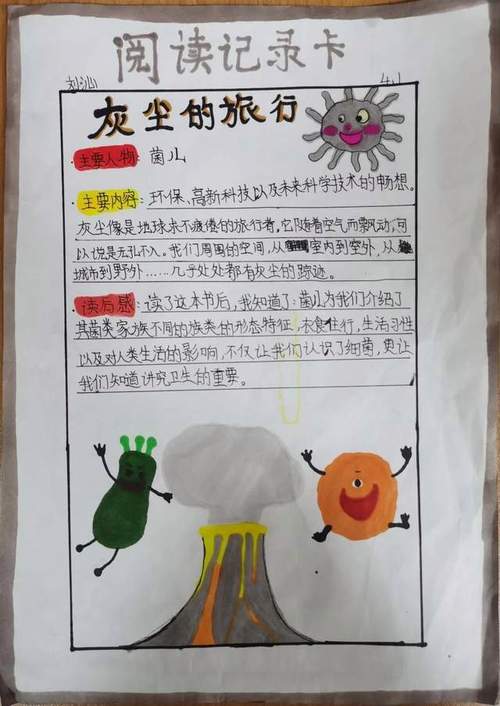 阅读记录卡
刘汕 4.1
灰尘的旅行
·主要人物:菌儿
·主要内容:环保、高新科技以及未来科学技术的畅想。
灰尘像是地球永不疲倦的旅行者,它随着空气而飘动,可
以说是无孔不入。我们周围的空间,从室内到室外,从
城市到野外……几乎处处都有灰尘的踪迹。
·读后感:读了这本书后,我知道了:菌儿为我们介绍了
其菌类家族不同的族类的形态特征,衣食住行,生活习性
以及对人类生活的影响,不仅让我们认识了细菌,更让
我们知道讲究卫生的重要。